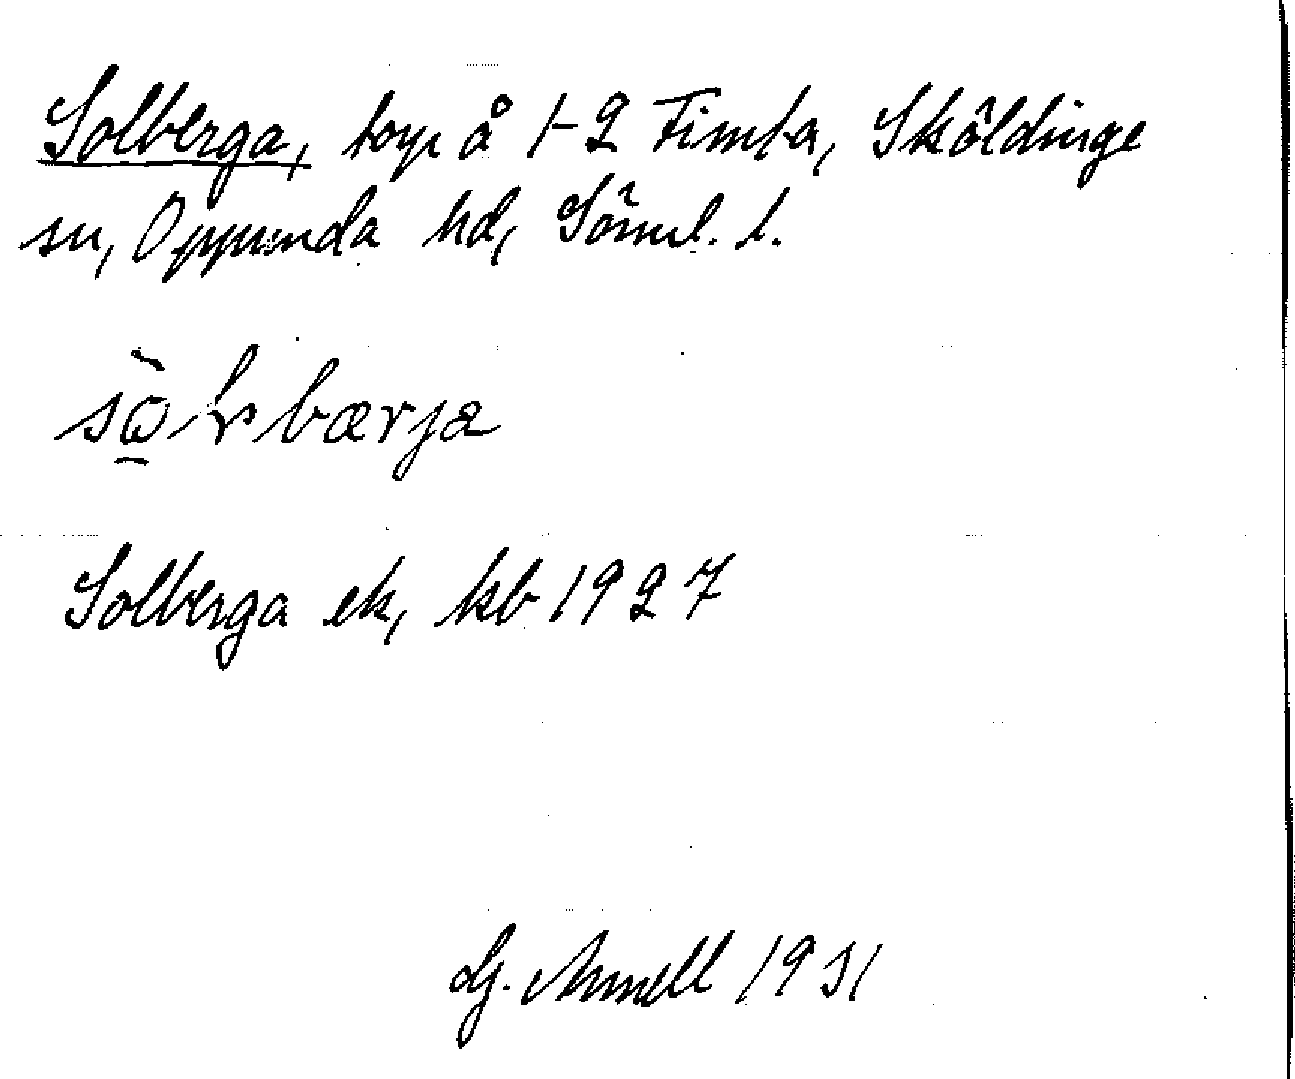 Solberga, torp å 1-2 Fimta, Sköldinge
sn, Oppunda hd, Söml. l.
bærja
Solberga ek, kb 1927
G. Annell 1931